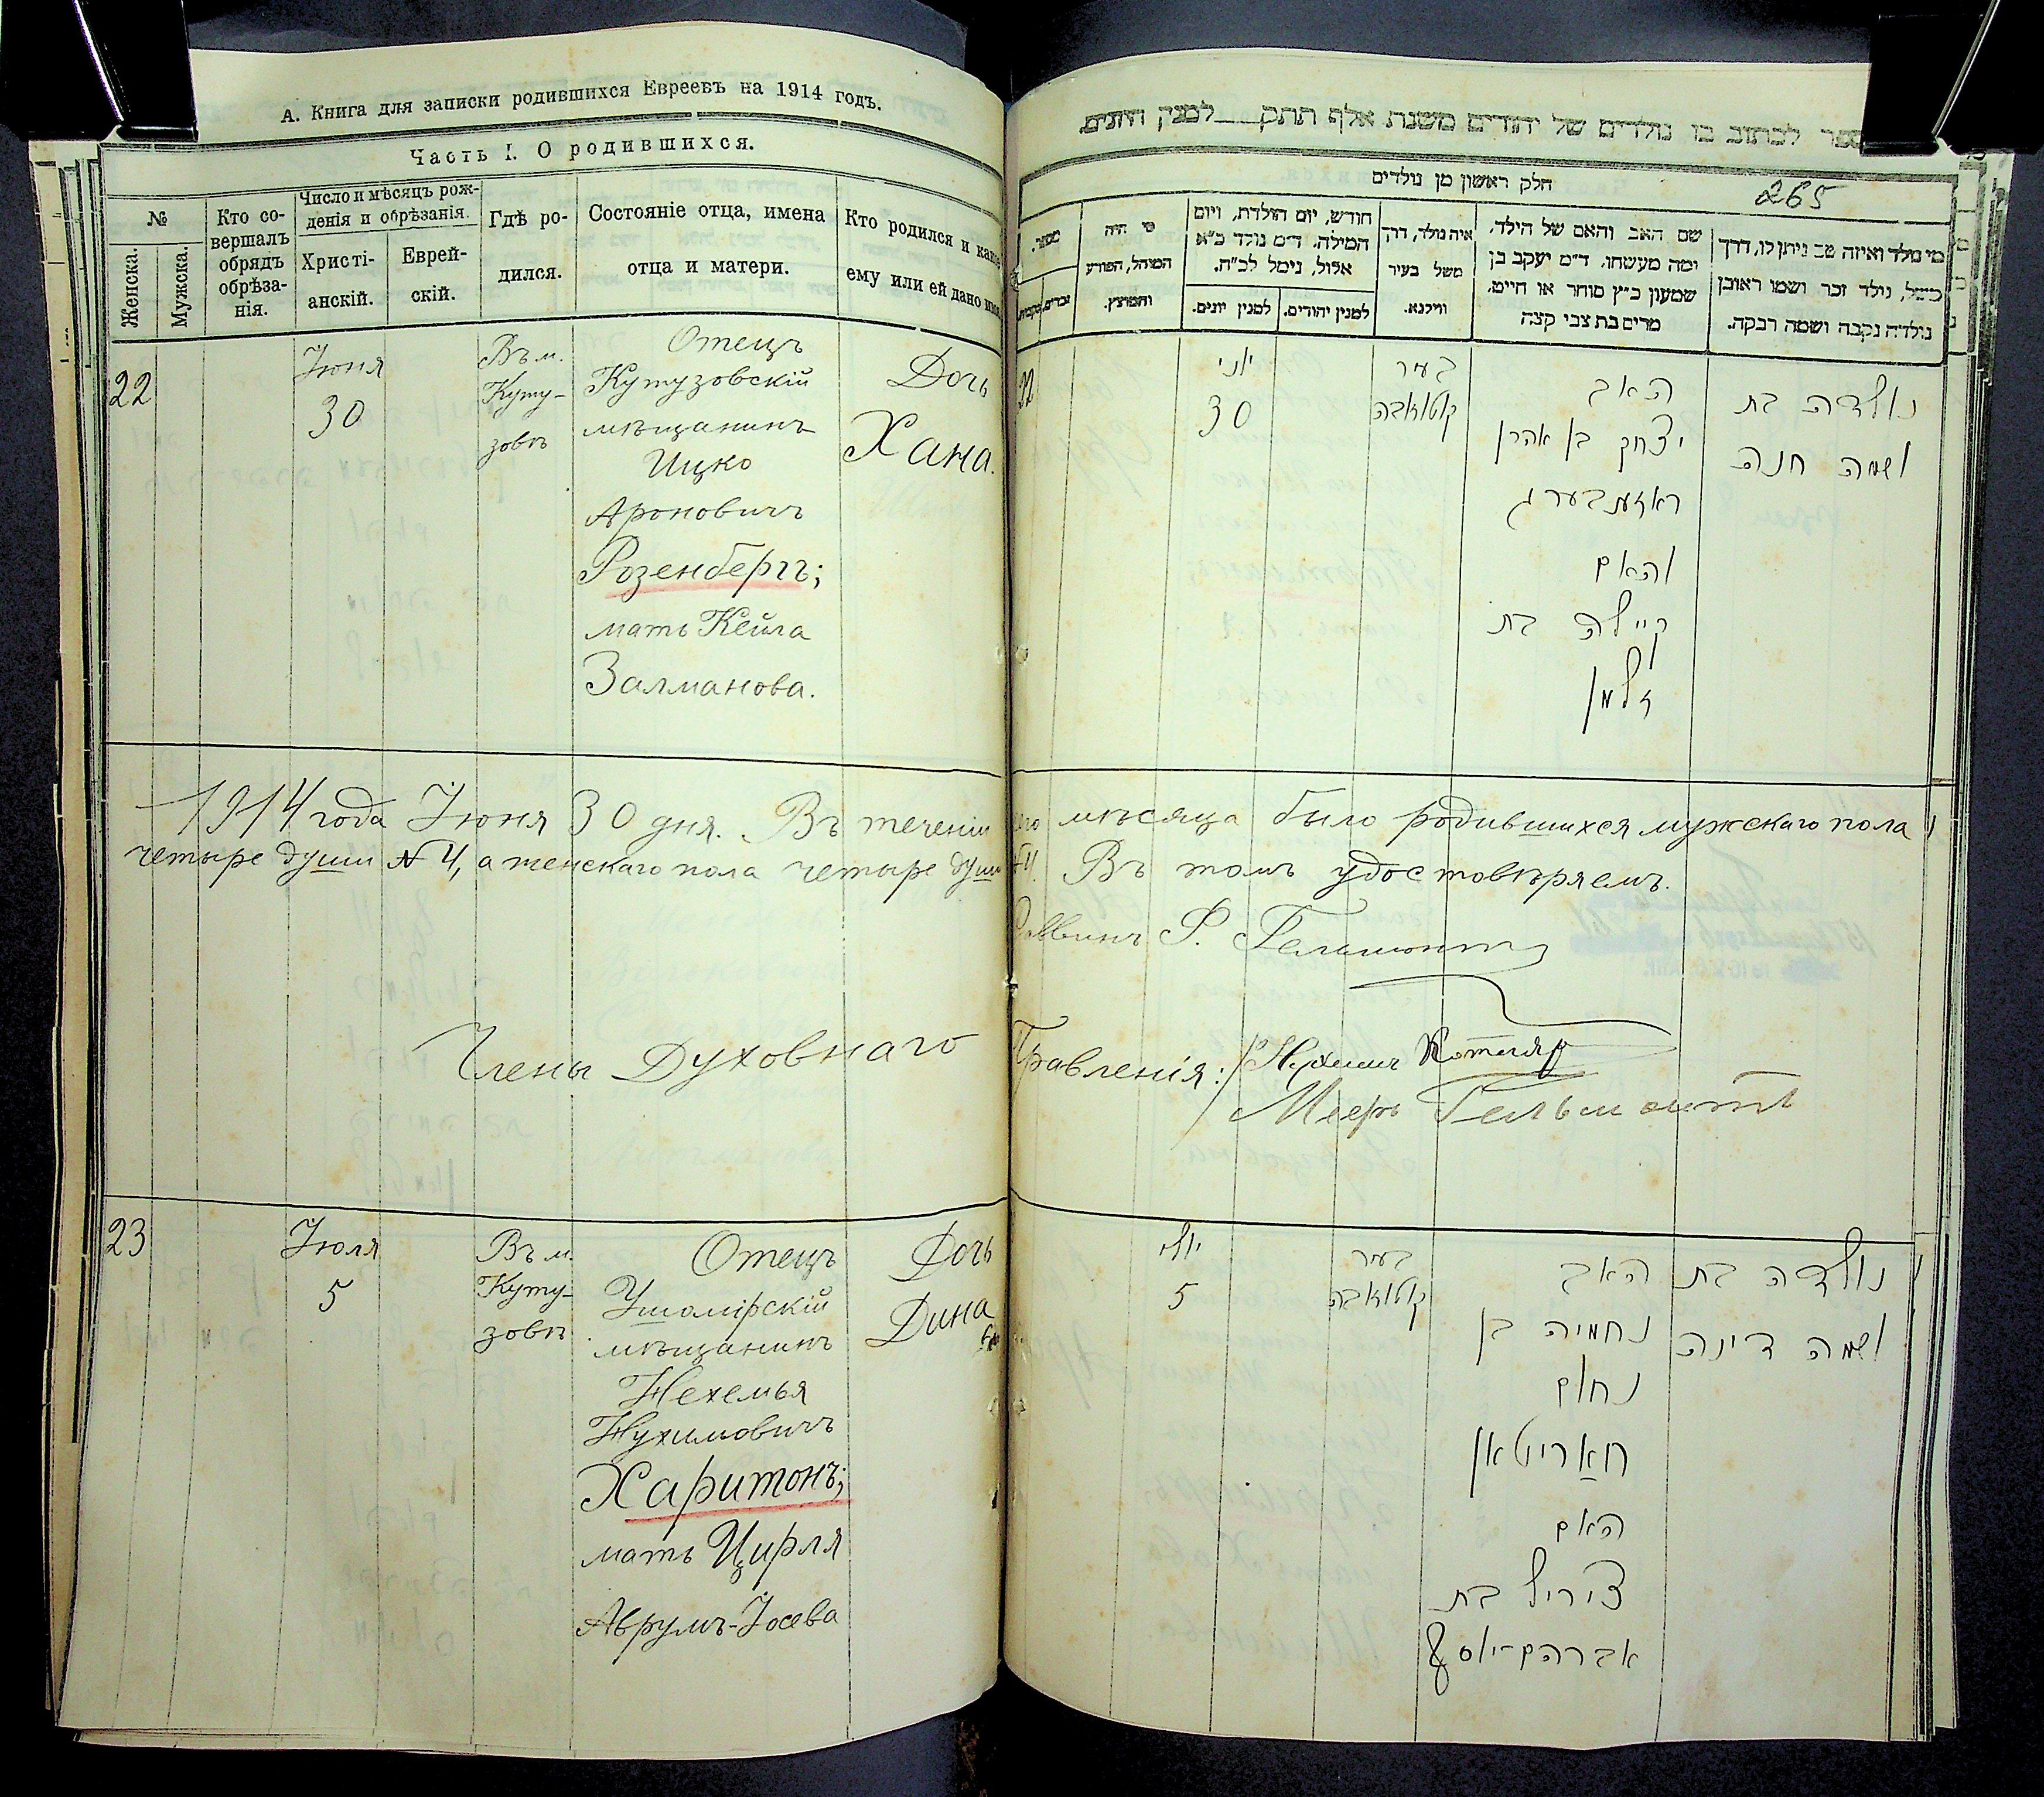 А. Книга для записки родившихся Евреевъ на 1914 годъ.
Часть I. О родившихся.
№
Женска.
Мужска.
Кто со-
вершалъ
обрядъ
обрѣза-
нія.
Число и мѣсяцъ рож-
денія и обрѣзанія.
Христі-
анскій.
Еврей-
скій.
Гдѣ ро-
дился.
Состояніе отца, имена
отца и матери.
Кто родился и какое
ему или ей дано имя.
22
Іюня
30
Въ м.
Куту-
зовѣ
Отецъ
Кутузовскій
мѣщанинъ
Ицко
Ароновичъ
Розенбергъ;
мать Кейла
Залманова.
Дочь
Хана.
ספר לכתוב בו נולדים של יהודים משנת אלף תתק למנין היונים.
265
חלק ראשון מן נולדים
מספר.
זכרים.
מי היה
המוהל, הפורע
והמוצץ.
חודש, יום הולדת, ויום
המילה. ד״מ נולד כ״א
אלול, נימל לכ״ח.
למנין יונים.
למנין יהודים.
איה נולד, דרך
משל בעיר
ווילנא.
שם האב והאם של הילד,
ומה מעשהו. ד״מ יעקב בן
שמעון כ״ץ סוחר או חייט,
מרים בת צבי קצה
מי נולד ואיזה שם ניתן לו, דרך
משל, נולד זכר ושמו ראובן
נולדה נקבה ושמה רבקה.
יוני
30
בעיר
קוטוזאבה
האב
יצחק בן אהרן
ראזענבערג
והאם
קיילה בת
זלמן
נולדה בת
ושמה חנה
1914 года Іюня 30 дня. Въ теченіи сего мѣсяца было родившихся мужскаго пола
четыре души №4, а женскаго пола четыре души №4. Въ томъ удостовѣряемъ.
Раввинъ Ф. Гельмонтъ
Члены Духовнаго Правленія: Нухимъ Котляр
Мееръ Гельмонтъ
23
Іюля
5
Въ м.
Куту-
зовѣ
Отецъ
Ушомірскій
мѣщанинъ
Нехемья
Нухимовичъ
Харитонъ;
мать Цирля
Аврумъ-Іосева
Дочь
Дина
יולי
5
בעיר
קוטוזאבה
האב
נחמיה בן
נחום
חאריטאן
האם
ציריל בת
אברהם-יוסף
נולדה בת
ושמה דינה